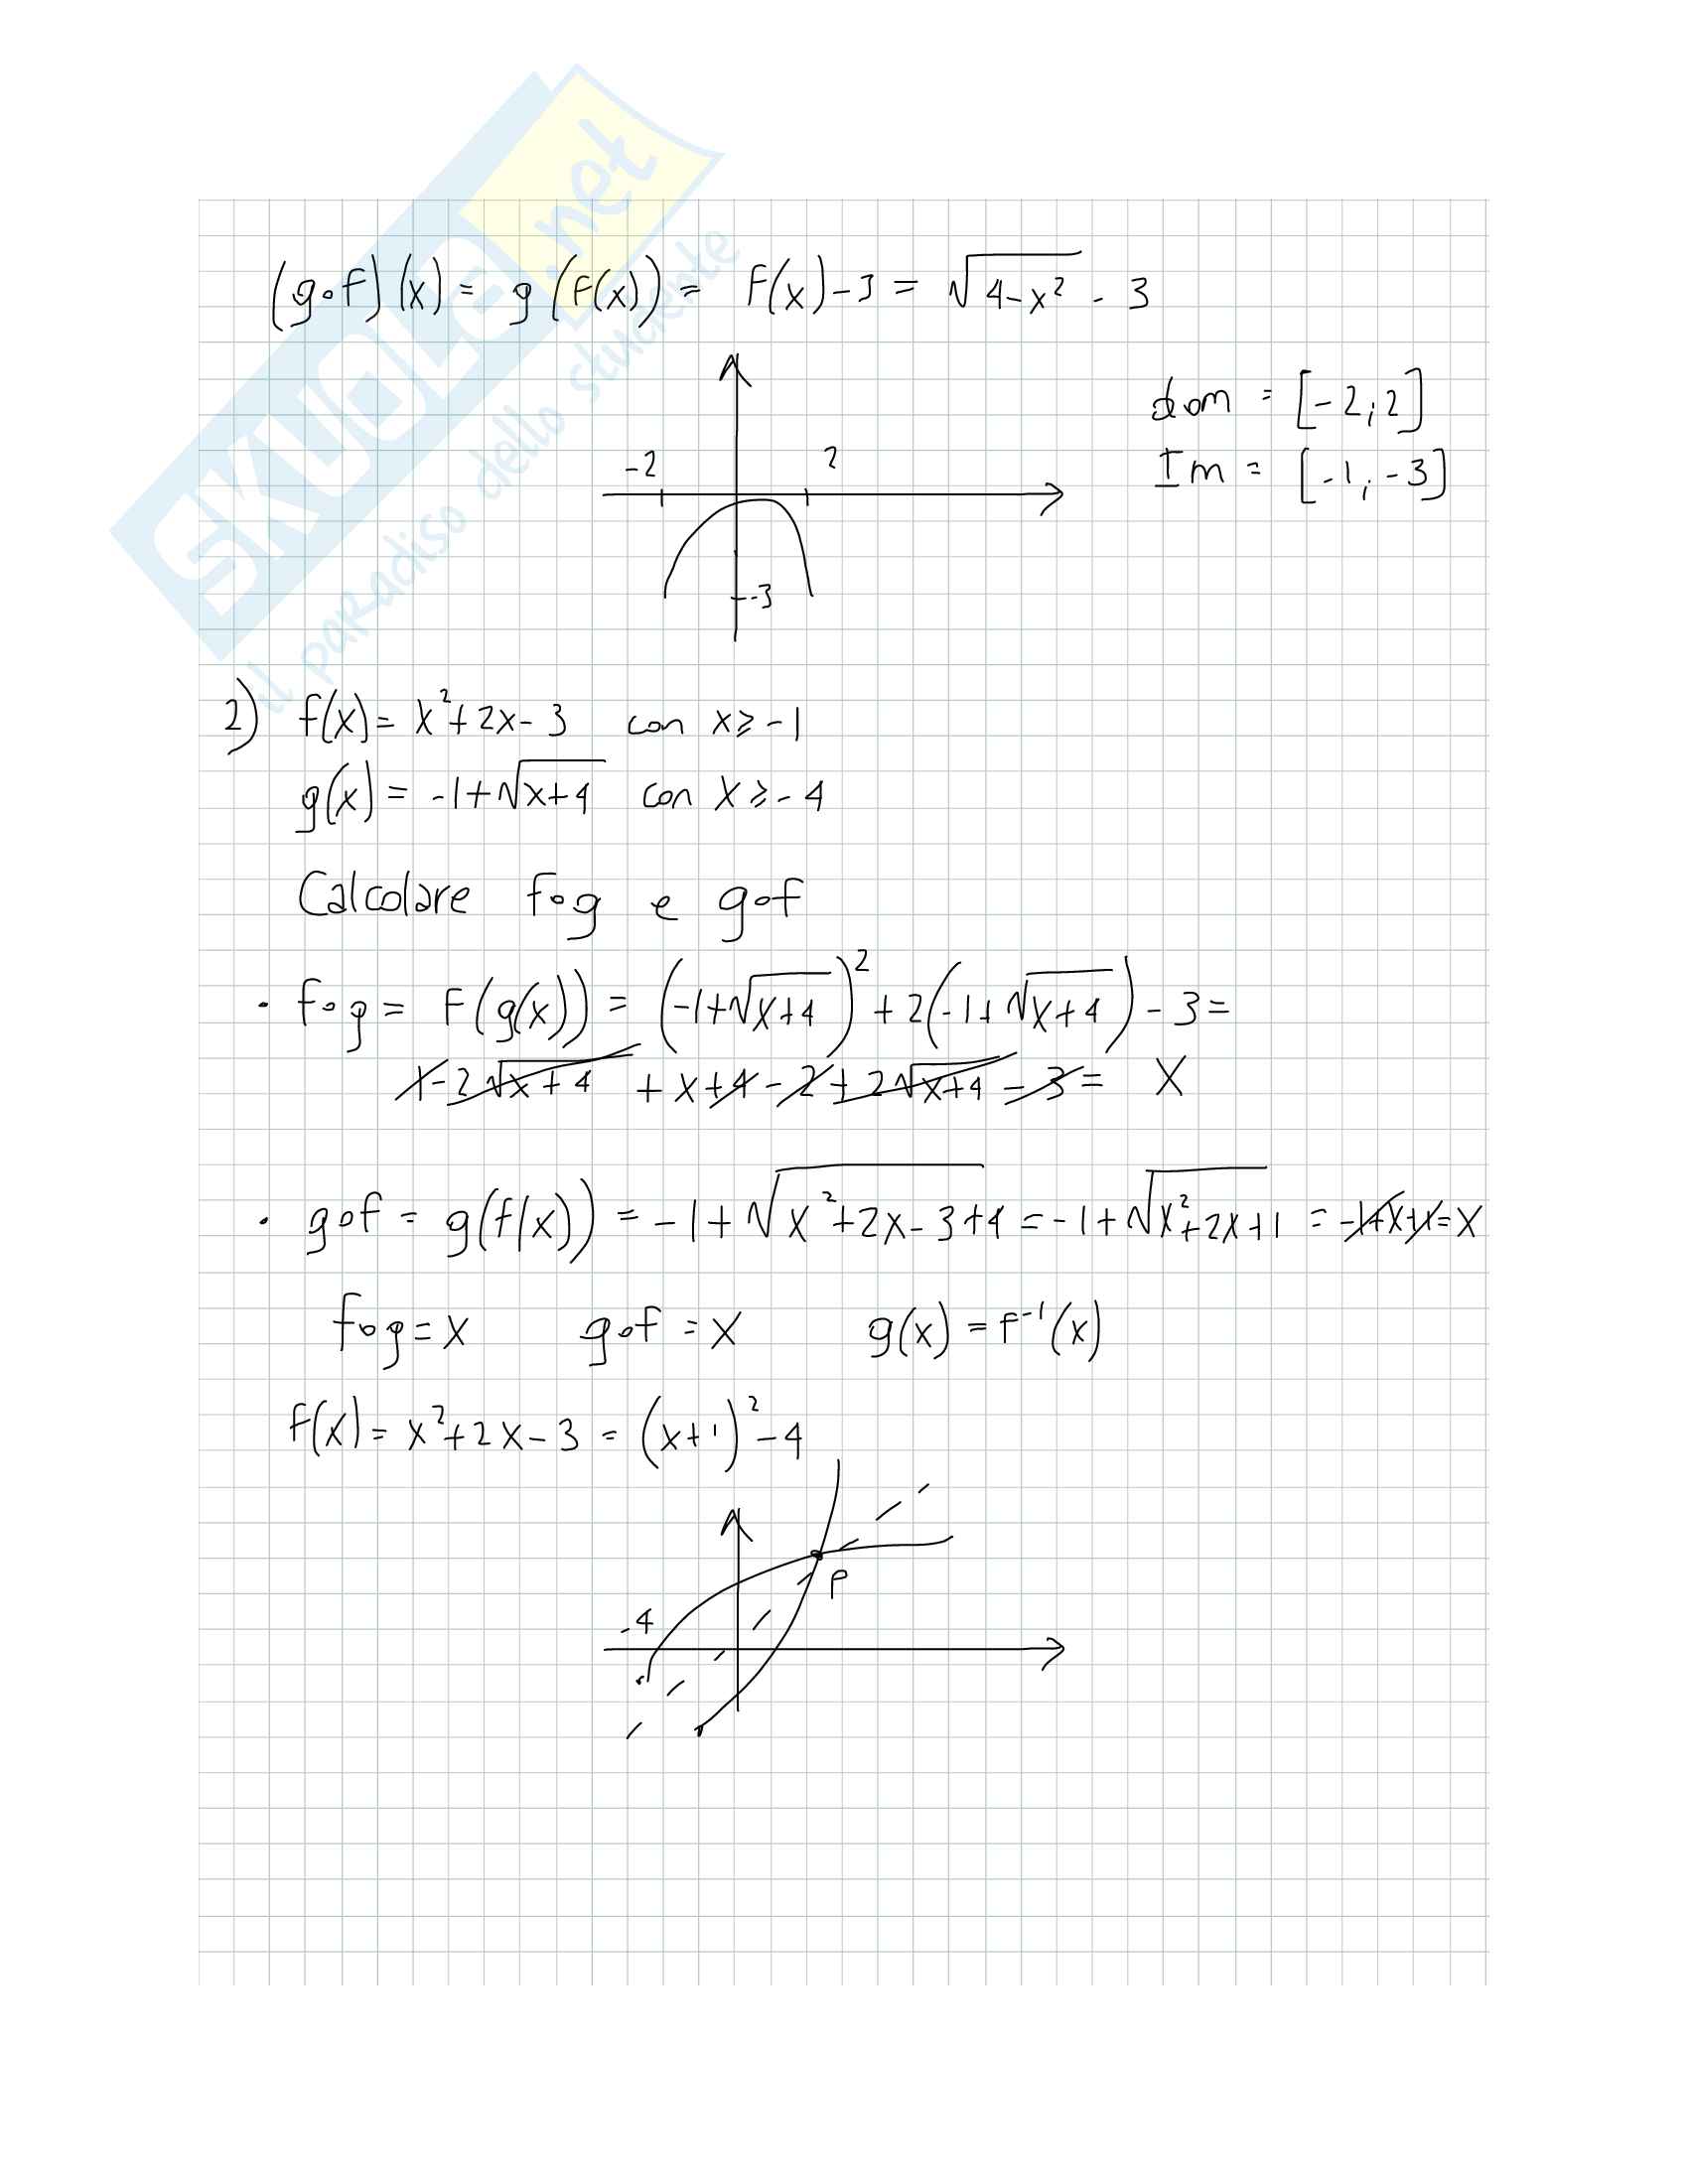 SKUOLA.net
il paradiso dello studente
(g∘f)(x) = g(f(x)) = f(x)-3 = √(4-x²) - 3
dom = [-2;2]
-2 2
Im = [-1,-3]
-3
2) f(x) = x²+2x-3 con x≥-1
g(x) = -1+√(x+4) con x≥-4
Calcolare f∘g e g∘f
• f∘g = f(g(x)) = (-1+√(x+4))² + 2(-1+√(x+4)) - 3 =
1-2√(x+4) + x+4-2+2√(x+4) -3 = x
• g∘f = g(f(x)) = -1+√(x²+2x-3+4) = -1+√(x²+2x+1) = -1+x+1=x
f∘g = x g∘f = x g(x) = f⁻¹(x)
f(x) = x²+2x-3 = (x+1)²-4
P
-4